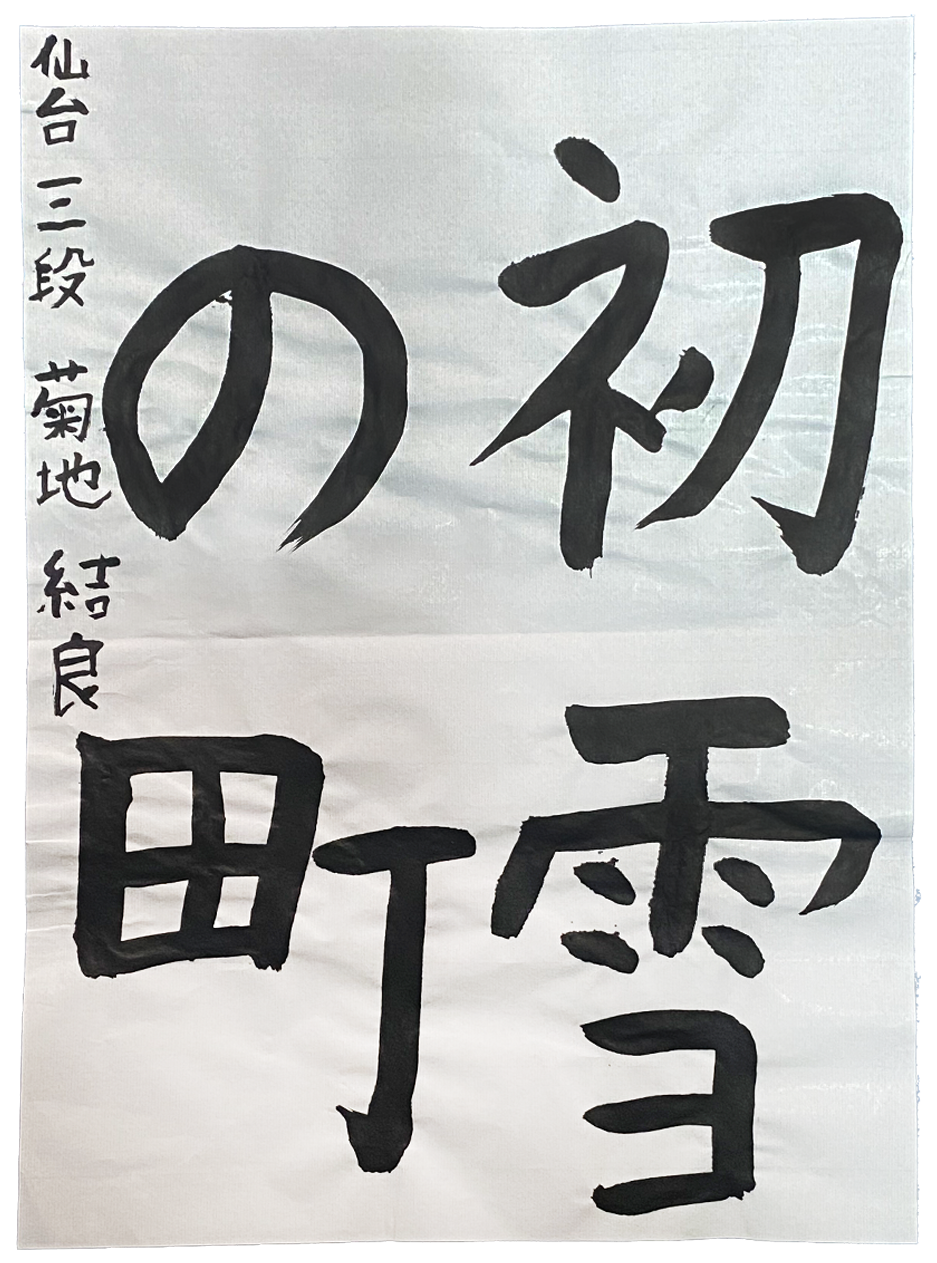 初雪
の町
仙台 三段 菊地 結良